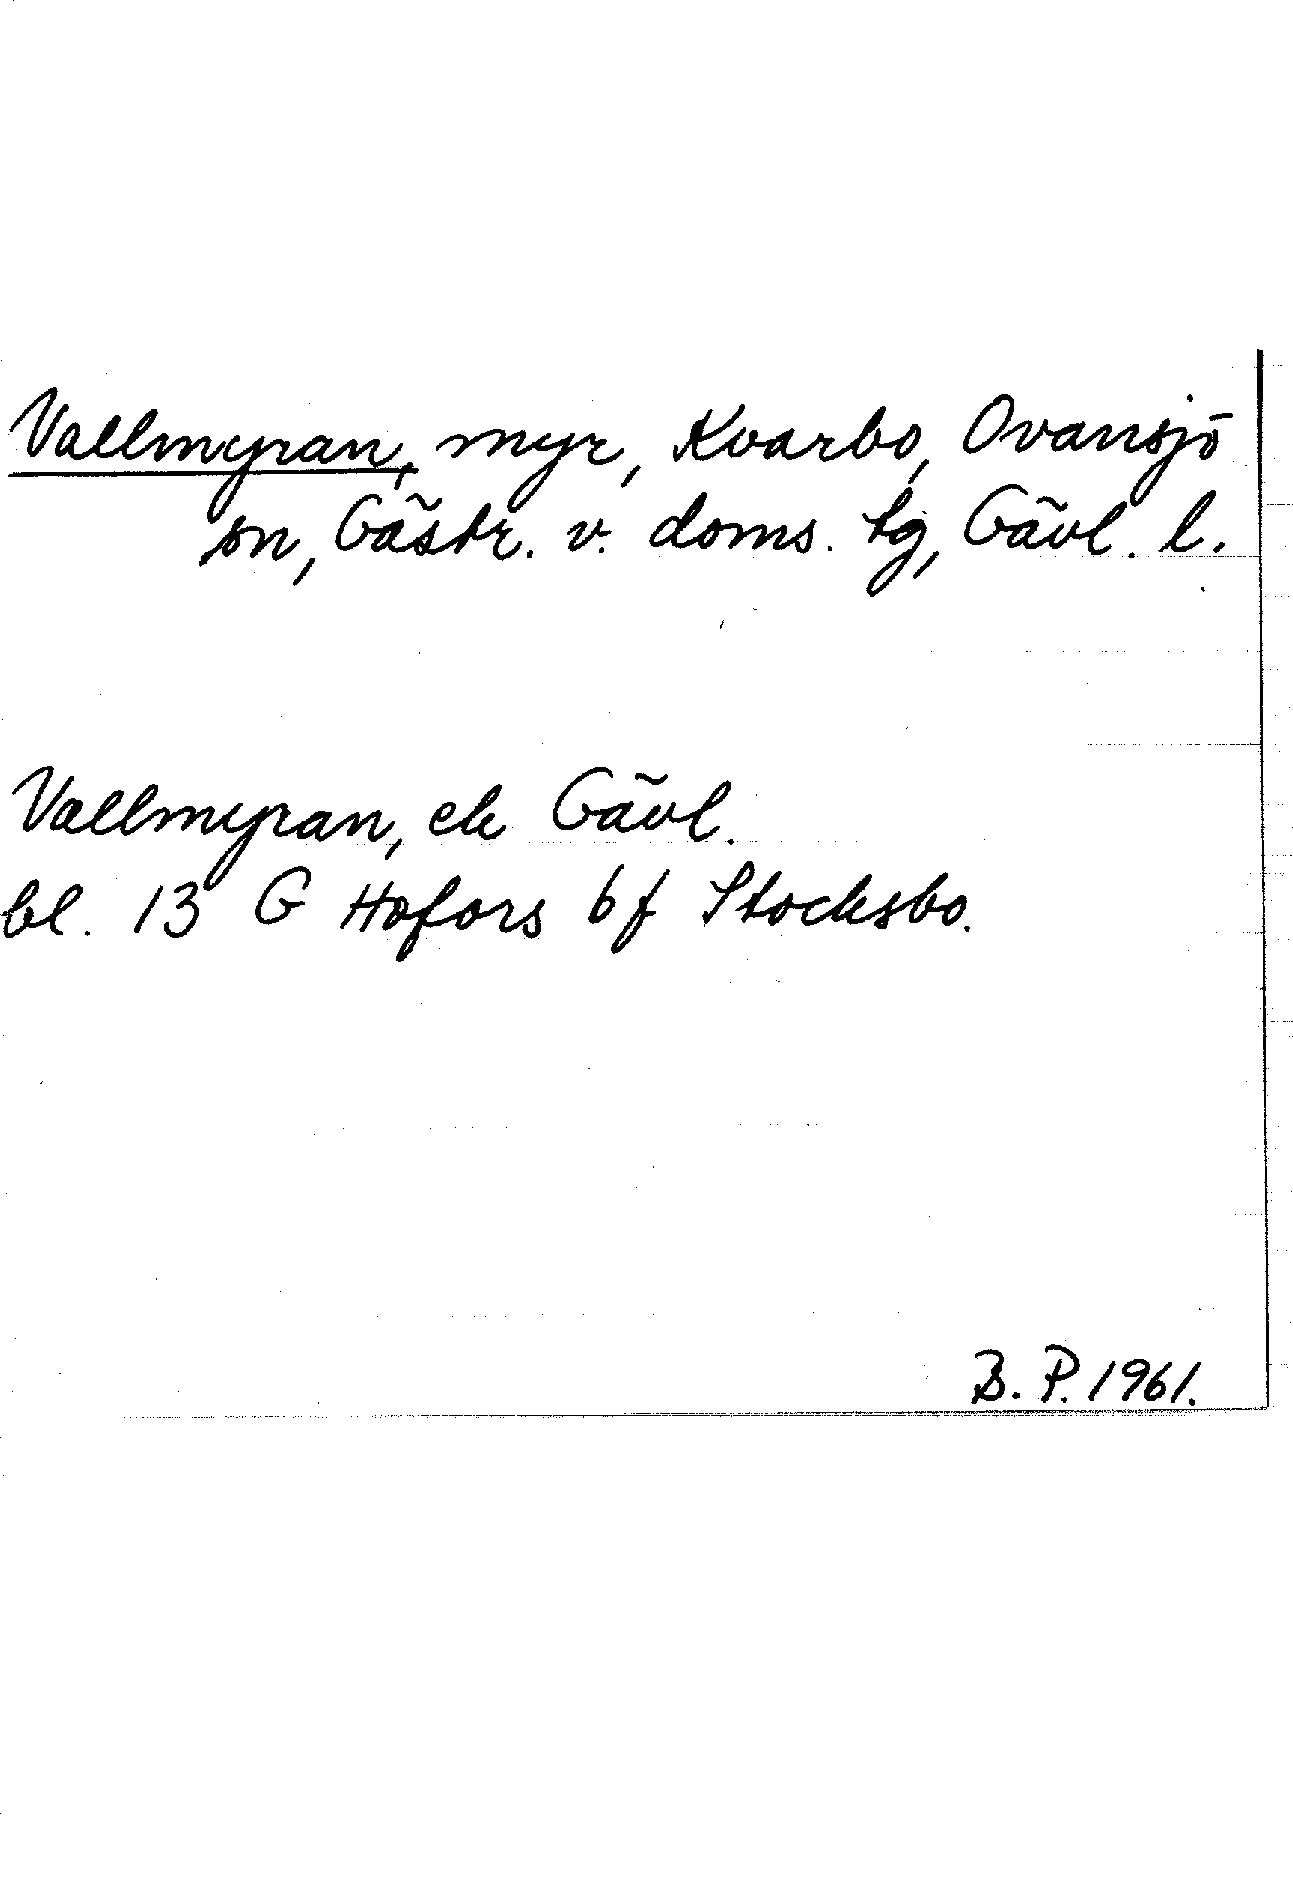 Vallmyran, myr, Kvarbo, Ovansjö
sn, Gästr. v. doms. tg, Gävl. l.
Vallmyran, ek Gävl.
bl. 13 G Hofors bf Stocksbo.
B. P. 1961.